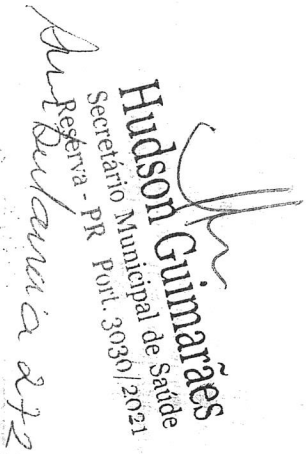 Hudson Guimarães
Secretário Municipal de Saúde
Reserva - PR Port. 3030/2021
Ambulancia 272